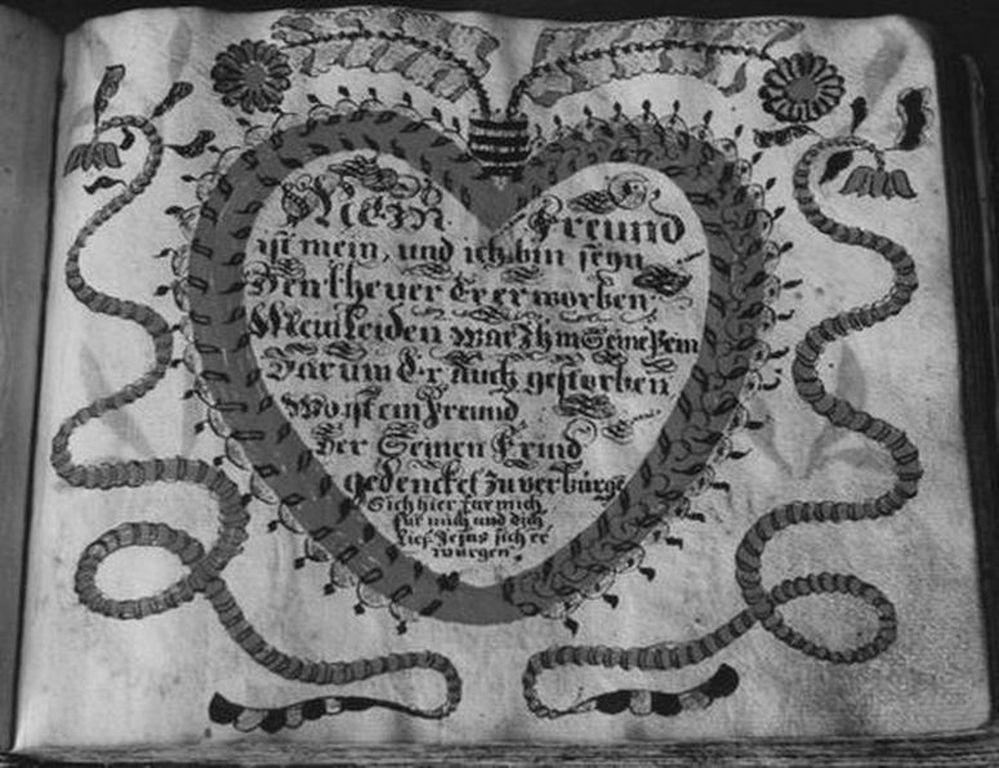 Mein Freund
ist mein, und ich bin seyn
Den theuer Er erworben
Mein Leiden war Ihm Seine Pein
Darum Er auch gestorben
Wo ist ein Freund
Der Seinen Feind
gedencket zu verbürge
Sich hier für mich
für mich und dich
Lies Jesus sich er
würgen.